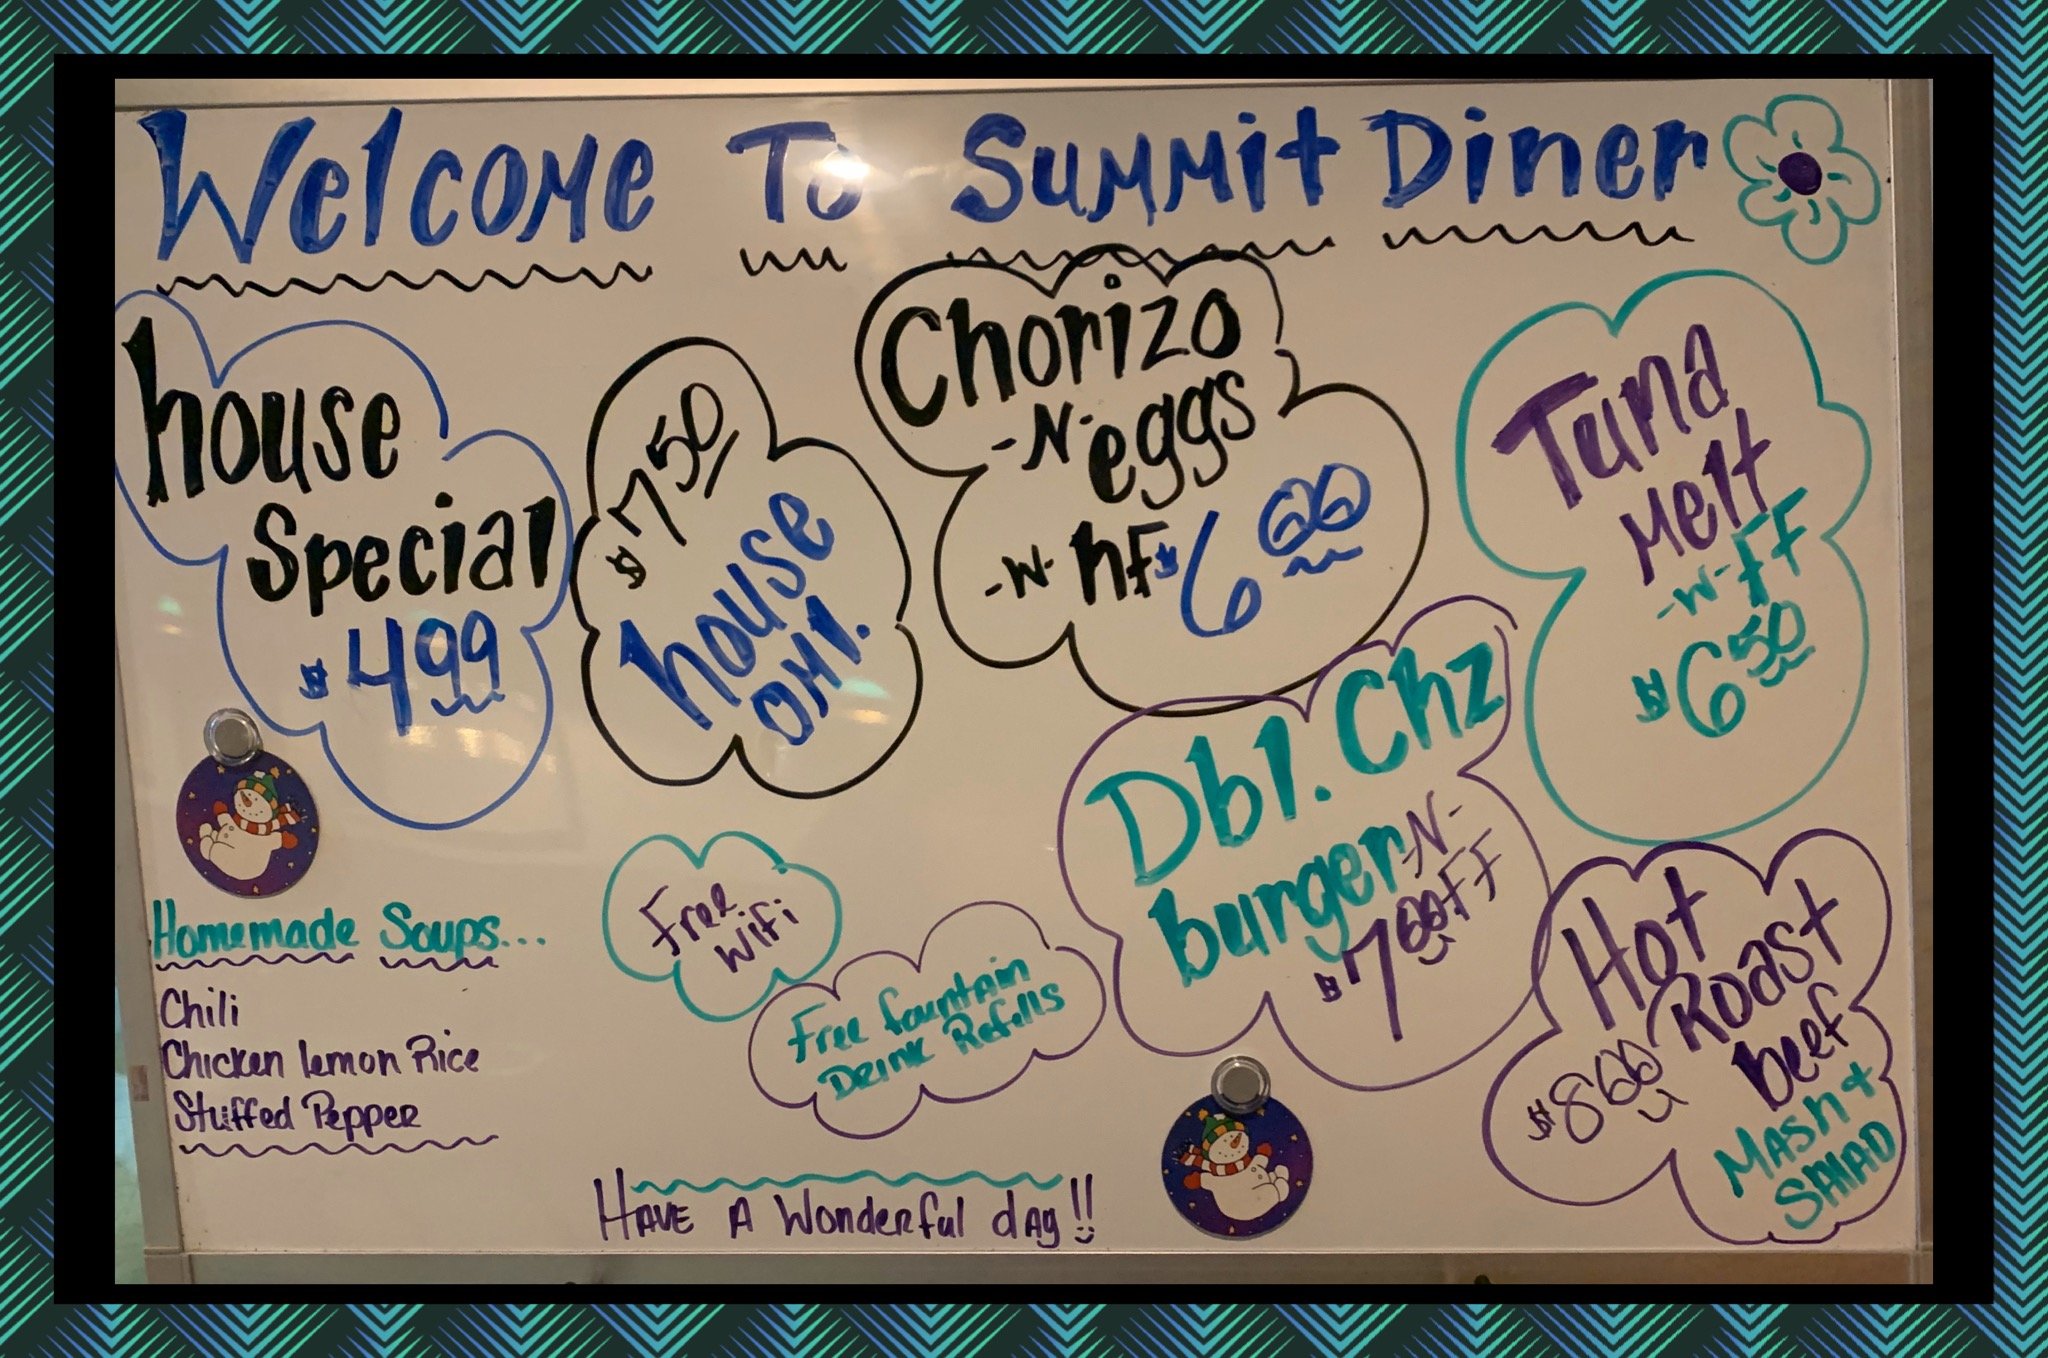 Welcome To Summit Diner
house
Special
$4.99
$7.50
house
OMl.
Chorizo
-N- eggs
-w- hF $6.00
Tuna
Melt
-w- FF
$6.50
Dbl. Chz
burger -N-
FF
$7.00
Hot
Roast
Beef
$8.00
Mash &
SALAD
Homemade Soups...
Chili
Chicken lemon Rice
Stuffed Pepper
Free
Wifi
Free fountain
Drink Refills
Have A Wonderful day!!